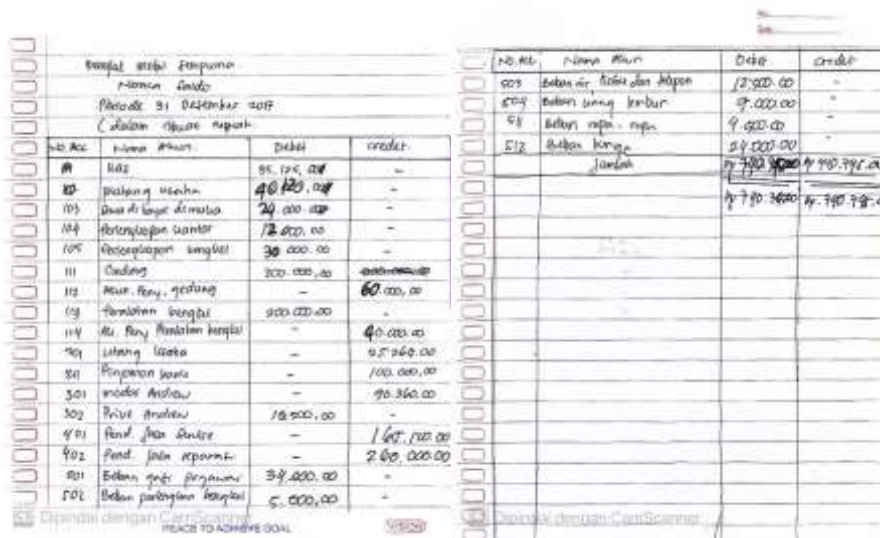 Bengkel mobil Sempurna
Neraca Saldo
Periode 31 Desember 2017
(dalam ribuan rupiah
No. Acc Nama Akun Debet credit
Kas 85.125,00 -
Piutang usaha 40.120,00 -
103 Sewa di bayar di muka 24.000.00 -
104 Perlengkapan kantor 12.000.00 -
105 Perlengkapan bengkel 30.000.00 -
111 Gedung 300.000,00
112 Akum. Peny. gedung - 60.000,00
113 Peralatan bengkel 200.000.00 -
114 Ak. Peny Peralatan bengkel - 40.000.00
201 utang usaha - 25.260.00
Pinjaman bank - 100.000,00
301 modal Andrew - 90.360.00
302 Prive Andrew 12.500,00 -
401 Pend. Jasa Service - 165.100.00
402 Pend. jasa reparasi - 260.000.00
501 Beban gaji pegawai 34.000.00 -
502 Beban perlengkapan bengkel 5.000,00 -
Dipindai dengan CamScanner
REACH TO ACHIEVE GOAL
VISION
No. Acc Nama Akun Debet credit
503 Beban air, listrik dan telepon 12.500.00 -
504 Beban uang lembur 9.000.00 -
511 Beban rupa-rupa 9.000.00 -
512 Beban bunga 24.000.00 -
Jumlah
Dipindai dengan CamScanner